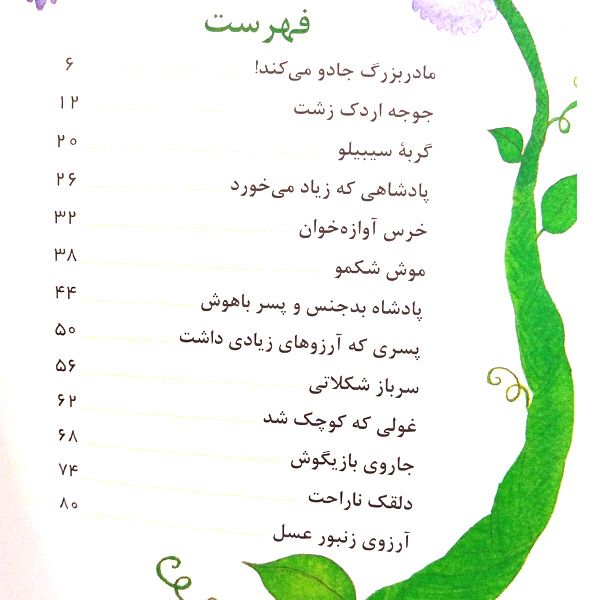 فهرست
مادربزرگ جادو می‌کند! ۶
جوجه اردک زشت ۱۲
گربهٔ سیبیلو ۲۰
پادشاهی که زیاد می‌خورد ۲۶
خرس آوازه‌خوان ۳۲
موش شکمو ۳۸
پادشاه بدجنس و پسر باهوش ۴۴
پسری که آرزوهای زیادی داشت ۵۰
سرباز شکلاتی ۵۶
غولی که کوچک شد ۶۲
جاروی بازیگوش ۶۸
دلقک ناراحت ۷۴
آرزوی زنبور عسل ۸۰